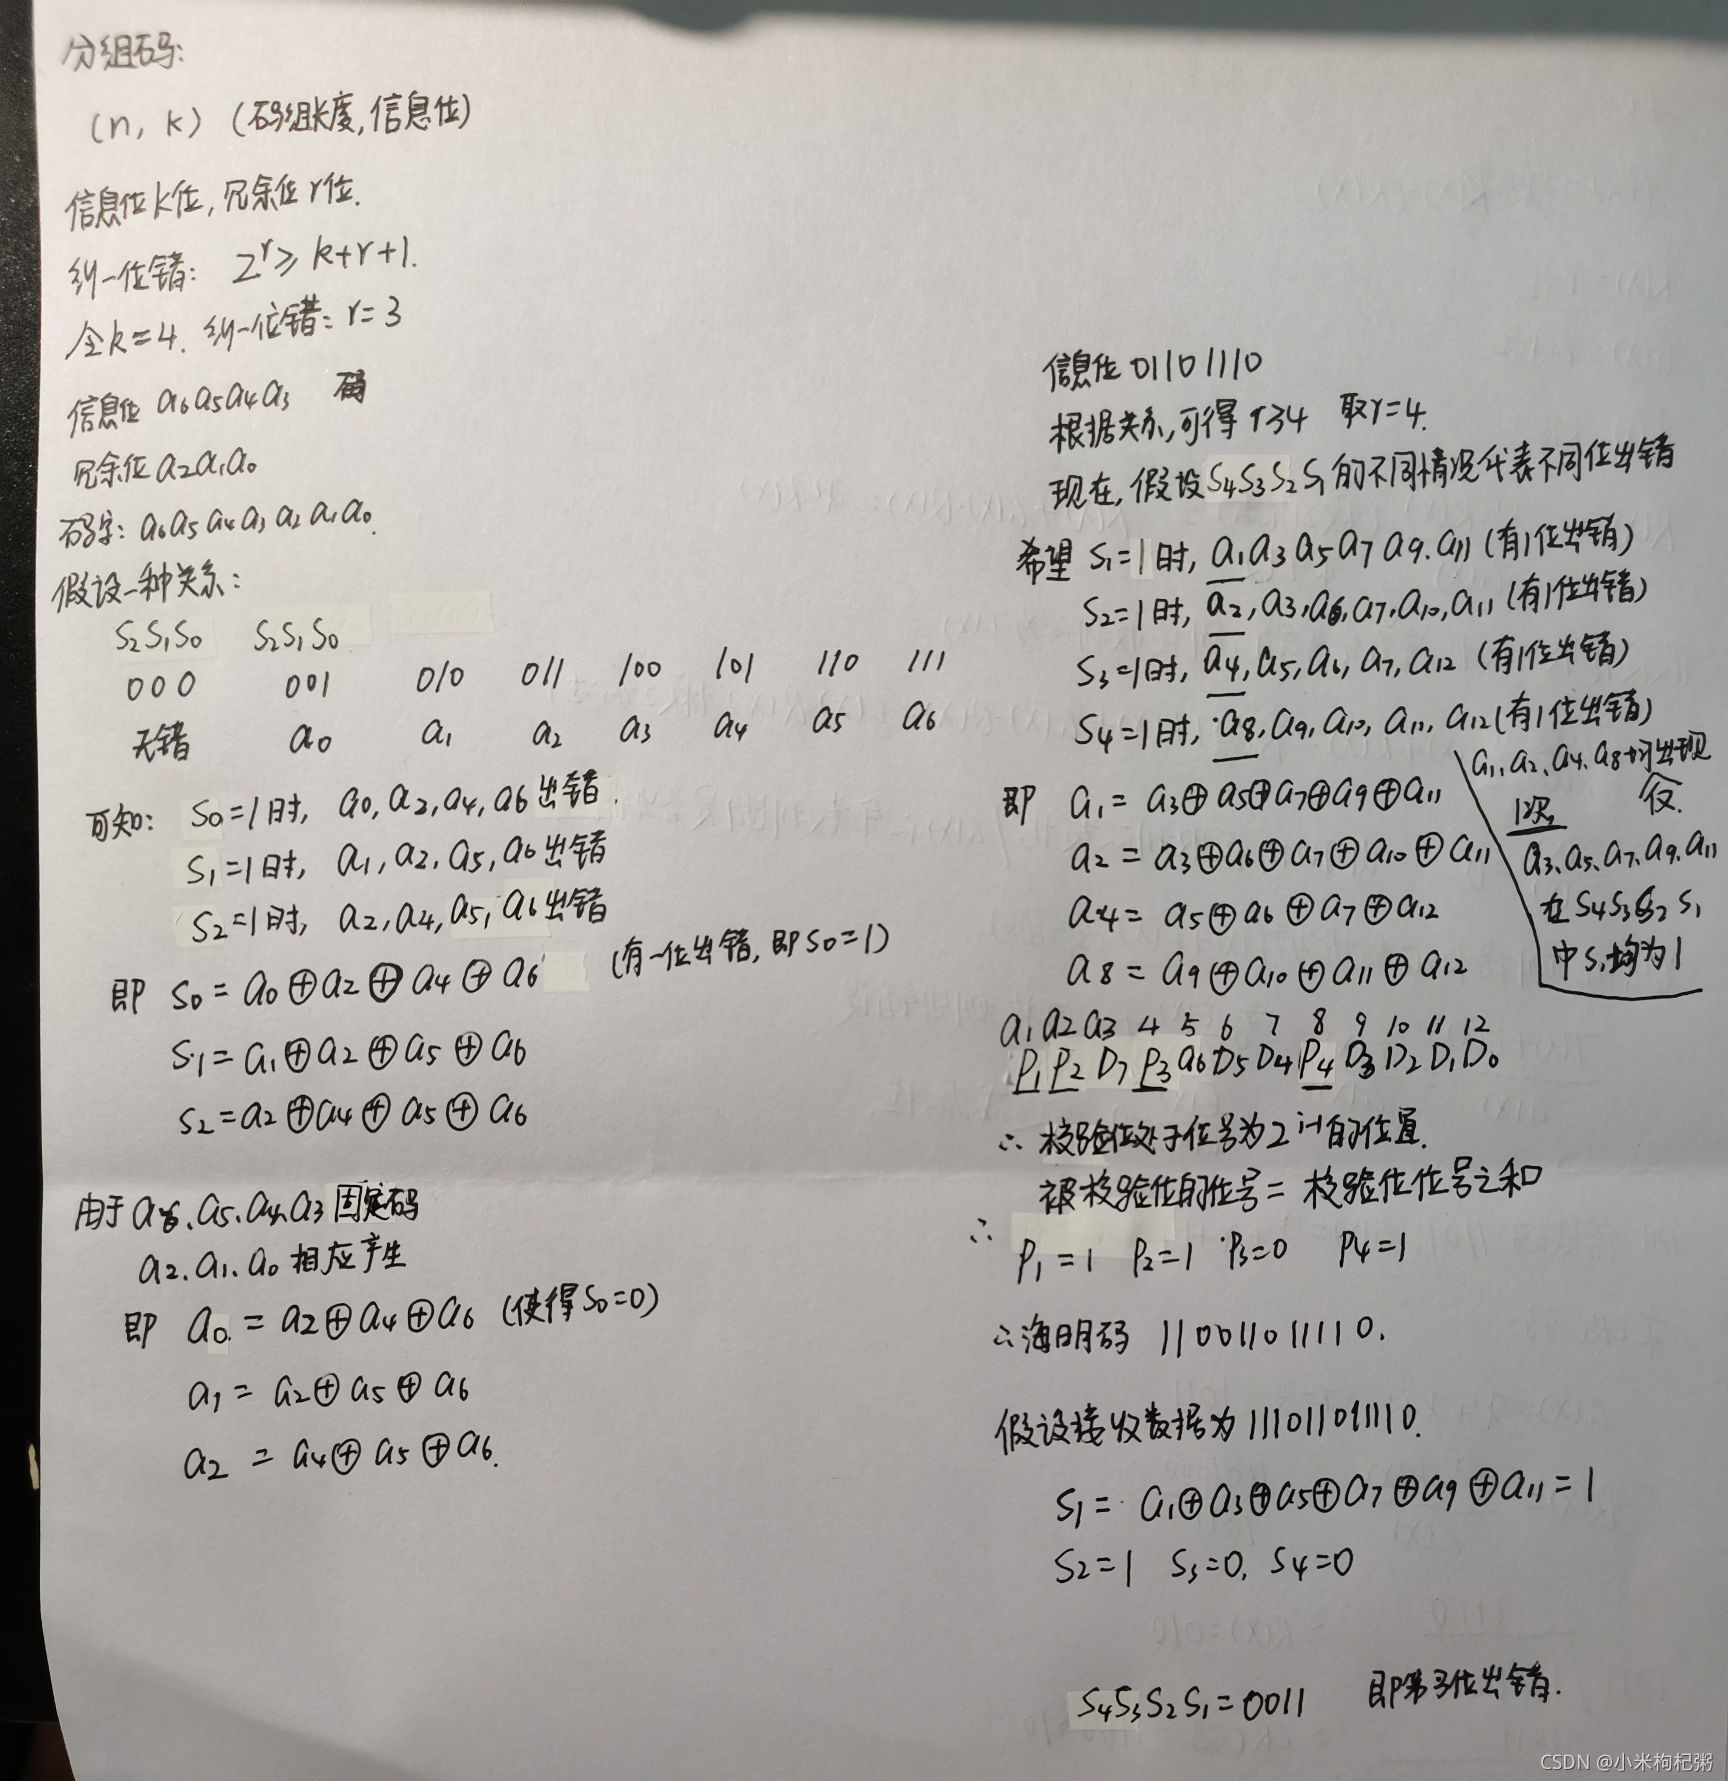 分组码:
(n, k) (码组长度,信息位)
信息位k位,冗余位r位.
纠一位错: 2^r ≥ k+r+1.
令k=4. 纠一位错: r=3
信息位 a6a5a4a3 码
冗余位a2a1a0
码字: a6a5a4a3a2a1a0.
假设一种关系:
S2S1S0 S2S1S0
000 001 010 011 100 101 110 111
无错 a0 a1 a2 a3 a4 a5 a6
可知: S0=1时, a0,a2,a4,a6出错.
S1=1时, a1,a2,a5,a6出错
S2=1时, a2,a4,a5,a6出错
即 S0=a0⊕a2⊕a4⊕a6 (有一位出错,即S0=1)
S1=a1⊕a2⊕a5⊕a6
S2=a2⊕a4⊕a5⊕a6
由于a6、a5、a4、a3固定码
a2、a1、a0相应产生
即 a0=a2⊕a4⊕a6 (使得S0=0)
a1=a2⊕a5⊕a6
a2=a4⊕a5⊕a6.
信息位01101110
根据关系,可得r≥4 取r=4.
现在,假设S4S3S2S1的不同情况代表不同位出错
希望 S1=1时, a1a3a5a7a9.a11(有1位出错)
S2=1时, a2,a3,a6,a7,a10,a11(有1位出错)
S3=1时, a4,a5,a6,a7,a12(有1位出错)
S4=1时, a8,a9,a10,a11,a12(有1位出错)
即 a1=a3⊕a5⊕a7⊕a9⊕a11
a2=a3⊕a6⊕a7⊕a10⊕a11
a4=a5⊕a6⊕a7⊕a12
a8=a9⊕a10⊕a11⊕a12
a1、a2、a4、a8均出现
1次, 仅.
a3、a5、a7、a9、a11
在S4S3S2S1
中S1均为1
a1a2a3 4 5 6 7 8 9 10 11 12
P1P2D7P3a6D5D4P4D3D2D1D0
∴ 校验位处于位号为2^i-1的位置.
被校验位的位号=校验位位号之和
∴ P1=1 P2=1 P3=0 P4=1
∴海明码 110011011110.
假设接收数据为111011011110.
S1=a1⊕a3⊕a5⊕a7⊕a9⊕a11=1
S2=1 S3=0, S4=0
S4S3S2S1=0011 即第3位出错.
CSDN @小米枸杞粥